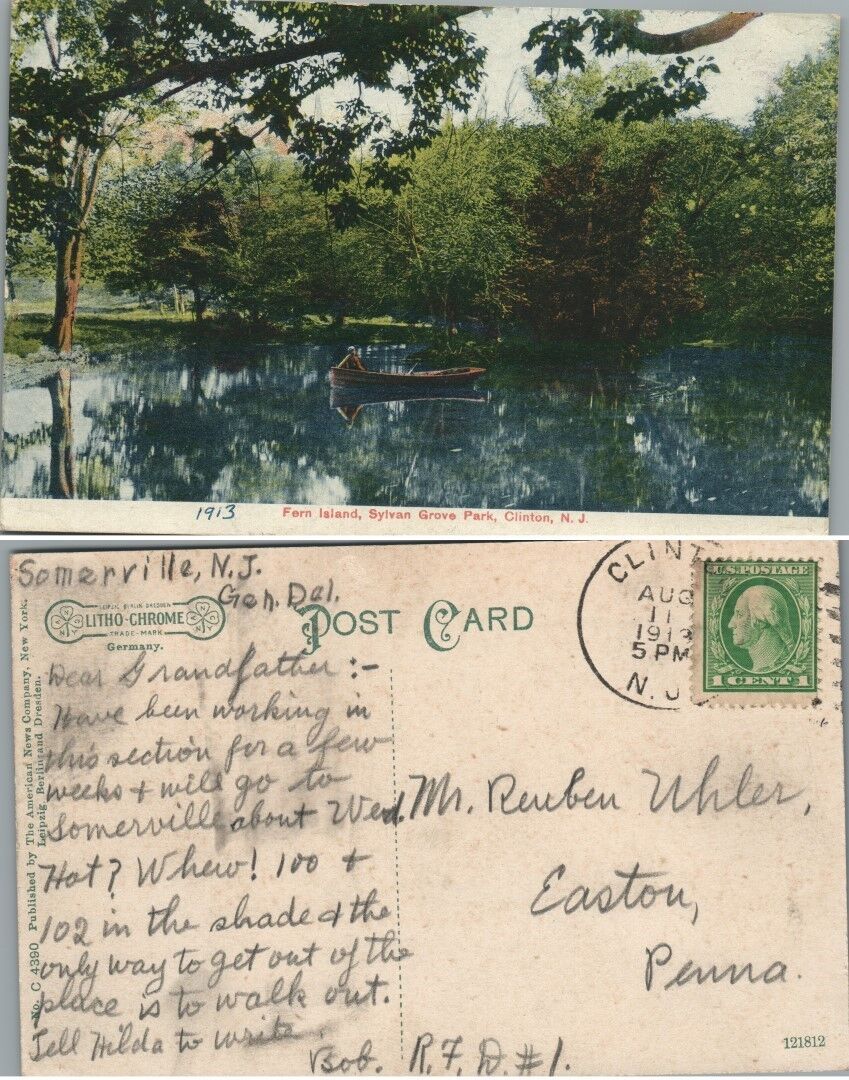 1913
Fern Island, Sylvan Grove Park, Clinton, N. J.
Somerville, N.J.
Gen. Del.
LEIPZIG BERLIN DRESDEN
LITHO-CHROME
TRADE-MARK
Germany.
POST CARD
CLINT
AUG
11
1913
5 PM
N. J
U.S. POSTAGE
1 CENT 1
No. C 4390 Published by The American News Company, New York.
Leipzig, Berlin and Dresden.
Dear Grandfather:-
Have been working in
this section for a few
weeks & will go to
Somerville about Wed.
Hot? Whew! 100 &
102 in the shade & the
only way to get out of the
place is to walk out.
Tell Hilda to write.
Bob.
Mr. Reuben Uhler,
Easton,
Penna.
R.F.D. #1.
121812